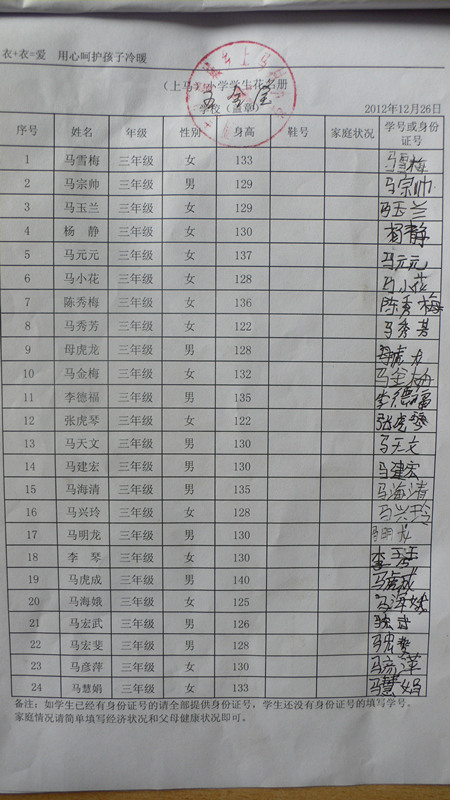 衣+衣=爱 用心呵护孩子冷暖
(上马 )小学学生花名册
学校(盖章) 2012年12月26日
序号 姓名 年级 性别 身高 鞋号 家庭状况 学号或身份证号
1 马雪梅 三年级 女 133 马雪梅
2 马宗帅 三年级 男 129 马宗帅
3 马玉兰 三年级 女 129 马玉兰
4 杨 静 三年级 女 130 杨静
5 马元元 三年级 女 137 马元元
6 马小花 三年级 女 128 马小花
7 陈秀梅 三年级 女 136 陈秀梅
8 马秀芳 三年级 女 122 马秀芳
9 母虎龙 三年级 男 128 母虎龙
10 马金梅 三年级 女 132 马金梅
11 李德福 三年级 男 135 李德福
12 张虎琴 三年级 女 122 张虎琴
13 马天文 三年级 男 130 马天文
14 马建宏 三年级 男 130 马建宏
15 马海清 三年级 男 135 马海清
16 马兴玲 三年级 女 128 马兴玲
17 马明龙 三年级 男 130 马明龙
18 李 琴 三年级 女 130 李琴
19 马虎成 三年级 男 140 马虎成
20 马海娥 三年级 女 125 马海娥
21 马宏武 三年级 男 126 马宏武
22 马宏斐 三年级 男 128 马宏斐
23 马彦萍 三年级 女 130 马彦萍
24 马慧娟 三年级 女 133 马慧娟
备注：如学生已经有身份证号的请全部提供身份证号，学生还没有身份证号的填写学号。
家庭情况请简单填写经济状况和父母健康状况即可。